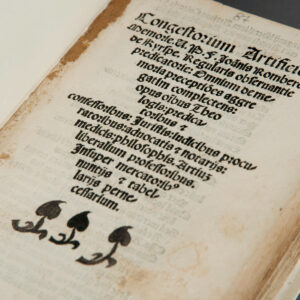 Congestorium Artificio
Memorie. V. P. F. Joãnis Romberch
de Kyrspe. Regularis obseruantie
predicatorie: Omnium de me-
moria preceptiões aggre
gatim complectens:
opus oibus Theo
logis: predica
toribus ⁊
confessoribus: Juristis: iudicibus procu
ratoribus: aduocatis ⁊ notarijs:
medicis: philosophis. Artiũ
liberalium professoribus.
Insuper mercatoribꝰ
nuntijs ⁊ tabel
larijs perne
cessarium.